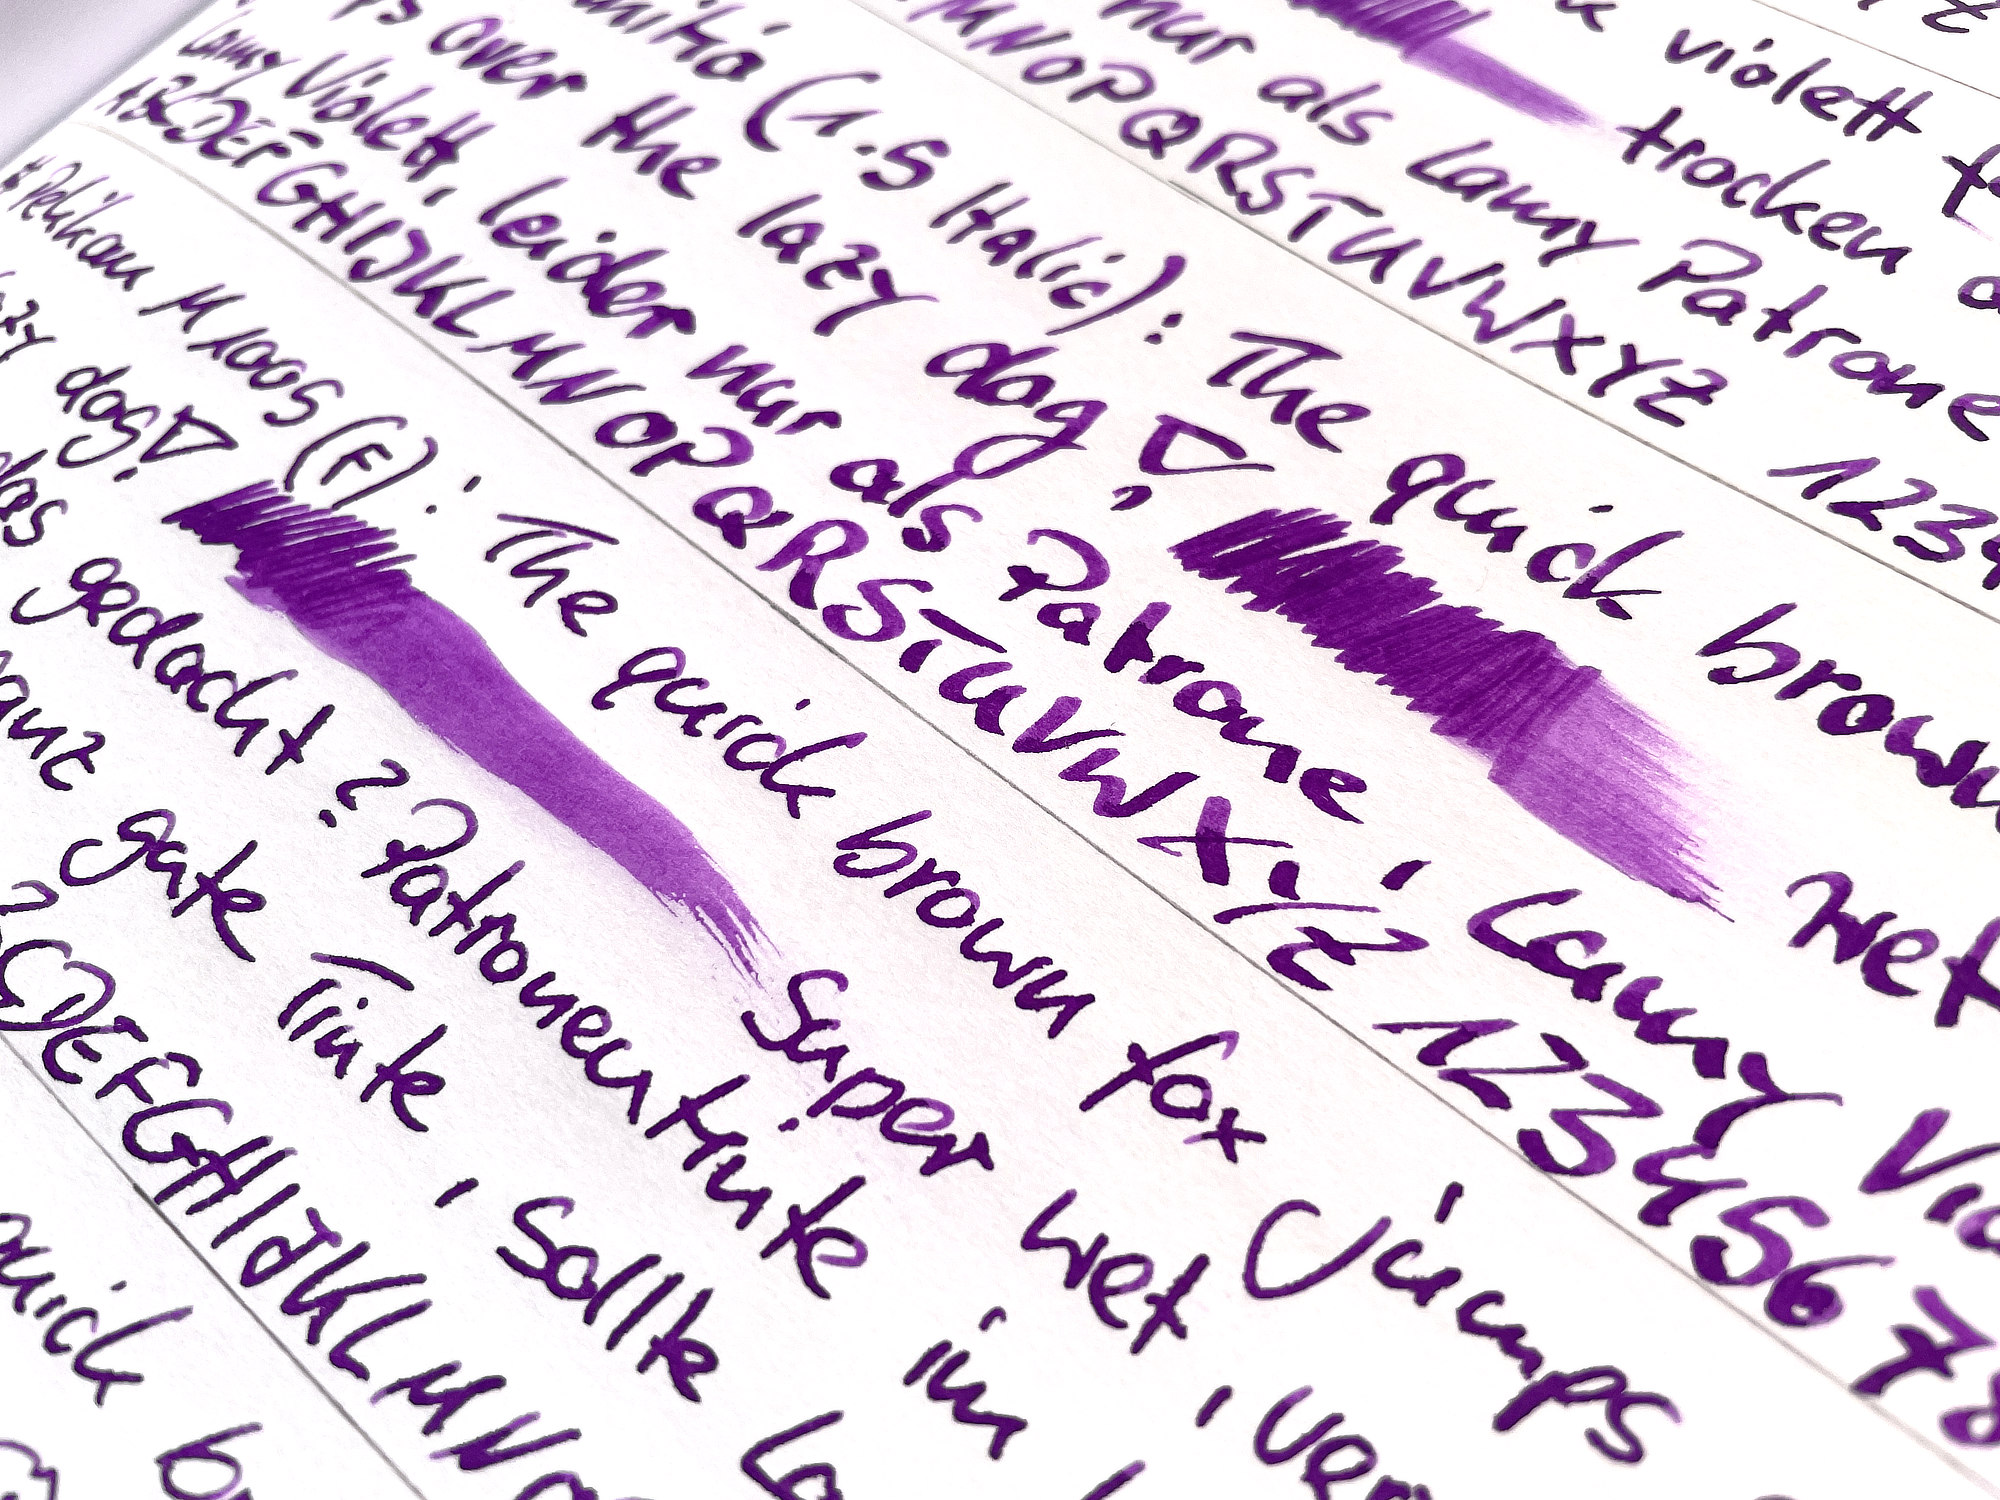 violett
trocken
nur als Lamy Patrone
MNOPQRSTUVWXYZ 1234
(1.5 Italic): The quick brown
over the lazy dog! Wet
Lamy Violett, leider nur als Patrone, Lamy Vio
ABCDEFGHIJKLMNOPQRSTUVWXYZ 12345678
Pelikan M1005 (F): The quick brown fox jumps
dog! Super wet, ver
das gedacht? Patronentinte im
gute Tinte, Sollte La
CDEFGHIJKLMN
quick b